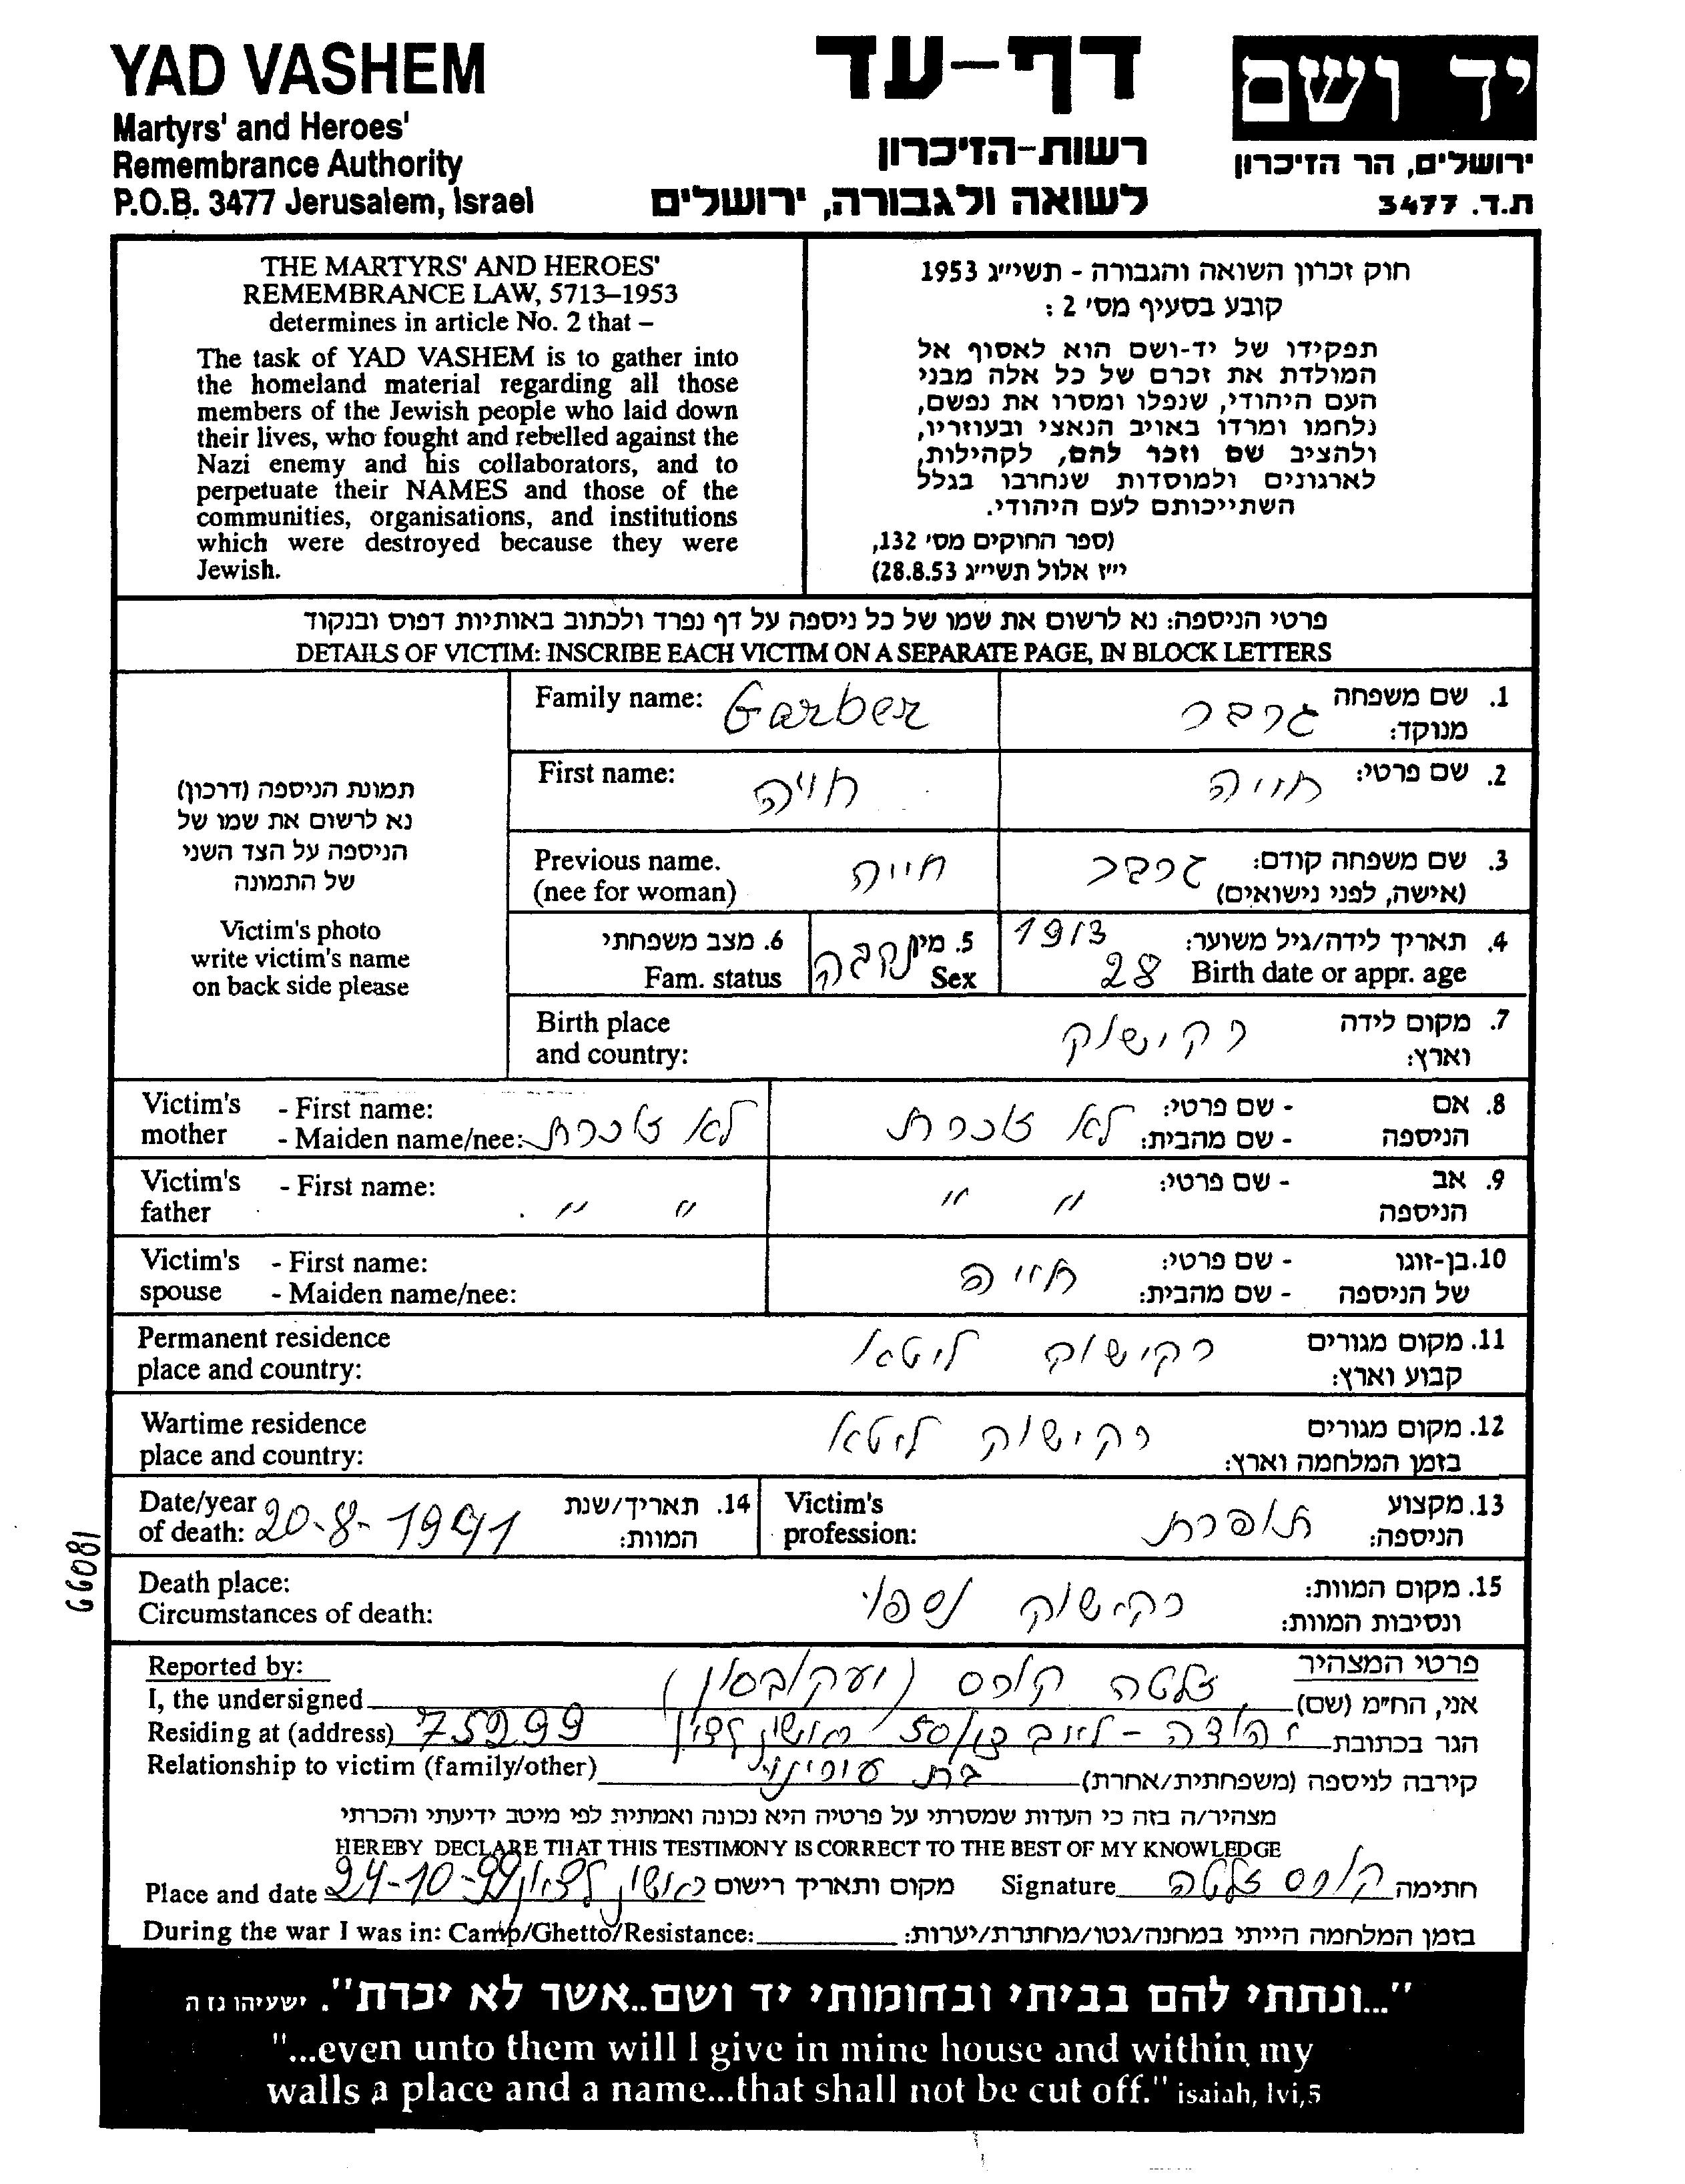 YAD VASHEM
Martyrs' and Heroes'
Remembrance Authority
P.O.B. 3477 Jerusalem, Israel
דף-עד
רשות-הזיכרון
לשואה ולגבורה, ירושלים
יד ושם
ירושלים, הר הזיכרון
ת.ד. 3477
THE MARTYRS' AND HEROES'
REMEMBRANCE LAW, 5713–1953
determines in article No. 2 that –
The task of YAD VASHEM is to gather into
the homeland material regarding all those
members of the Jewish people who laid down
their lives, who fought and rebelled against the
Nazi enemy and his collaborators, and to
perpetuate their NAMES and those of the
communities, organisations, and institutions
which were destroyed because they were
Jewish.
חוק זכרון השואה והגבורה - תשי״ג 1953
קובע בסעיף מס' 2 :
תפקידו של יד-ושם הוא לאסוף אל
המולדת את זכרם של כל אלה מבני
העם היהודי, שנפלו ומסרו את נפשם,
נלחמו ומרדו באויב הנאצי ובעוזריו,
ולהציב שם וזכר להם, לקהילות,
לארגונים ולמוסדות שנחרבו בגלל
השתייכותם לעם היהודי.
(ספר החוקים מס' 132,
י״ז אלול תשי״ג 28.8.53)
פרטי הניספה: נא לרשום את שמו של כל ניספה על דף נפרד ולכתוב באותיות דפוס ובנקוד
DETAILS OF VICTIM: INSCRIBE EACH VICTIM ON A SEPARATE PAGE, IN BLOCK LETTERS
תמונת הניספה (דרכון)
נא לרשום את שמו של
הניספה על הצד השני
של התמונה
Victim's photo
write victim's name
on back side please
Family name: Garber
1. שם משפחה גרבר
מנוקד:
First name: חייה
2. שם פרטי: חייה
Previous name. חייה
(nee for woman)
3. שם משפחה קודם: גרבר
(אישה, לפני נישואים)
6. מצב משפחתי
Fam. status
5. מין נקבה
Sex
4. תאריך לידה/גיל משוער: 1913
Birth date or appr. age 28
Birth place
and country:
7. מקום לידה רקישוק
וארץ:
Victim's mother
- First name:
- Maiden name/nee: לא זוכרת
8. אם הניספה
- שם פרטי: לא זוכרת
- שם מהבית:
Victim's father
- First name: " " "
9. אב הניספה
- שם פרטי: " "
Victim's spouse
- First name:
- Maiden name/nee:
10. בן-זוגו של הניספה
- שם פרטי: חייה
- שם מהבית:
Permanent residence
place and country:
11. מקום מגורים רקישוק ליטא
קבוע וארץ:
Wartime residence
place and country:
12. מקום מגורים רקישוק ליטא
בזמן המלחמה וארץ:
Date/year
of death: 20-8-1941
14. תאריך/שנת
המוות:
Victim's
profession:
13. מקצוע תופרת
הניספה:
Death place:
Circumstances of death:
15. מקום המוות: רקישוק נספו
ונסיבות המוות:
18099
Reported by:
פרטי המצהיר
I, the undersigned
אני, הח״מ (שם) זלטה קופס (יעקובסון)
Residing at (address) 75299
הגר בכתובת יהודה-לייב 50 ראשון לציון
Relationship to victim (family/other)
קירבה לניספה (משפחתית/אחרת) בת
מצהיר/ה בזה כי העדות שמסרתי על פרטיה היא נכונה ואמתית לפי מיטב ידיעתי והכרתי
HEREBY DECLARE THAT THIS TESTIMONY IS CORRECT TO THE BEST OF MY KNOWLEDGE
Place and date 24-10-99 ראשון לציון מקום ותאריך רישום
Signature קופס זלטה חתימה
During the war I was in: Camp/Ghetto/Resistance:
בזמן המלחמה הייתי במחנה/גטו/מחתרת/יערות:
"...ונתתי להם בביתי ובחומותי יד ושם..אשר לא יכרת". ישעיהו נז ה
"...even unto them will I give in mine house and within my
walls a place and a name...that shall not be cut off." isaiah, lvi,5